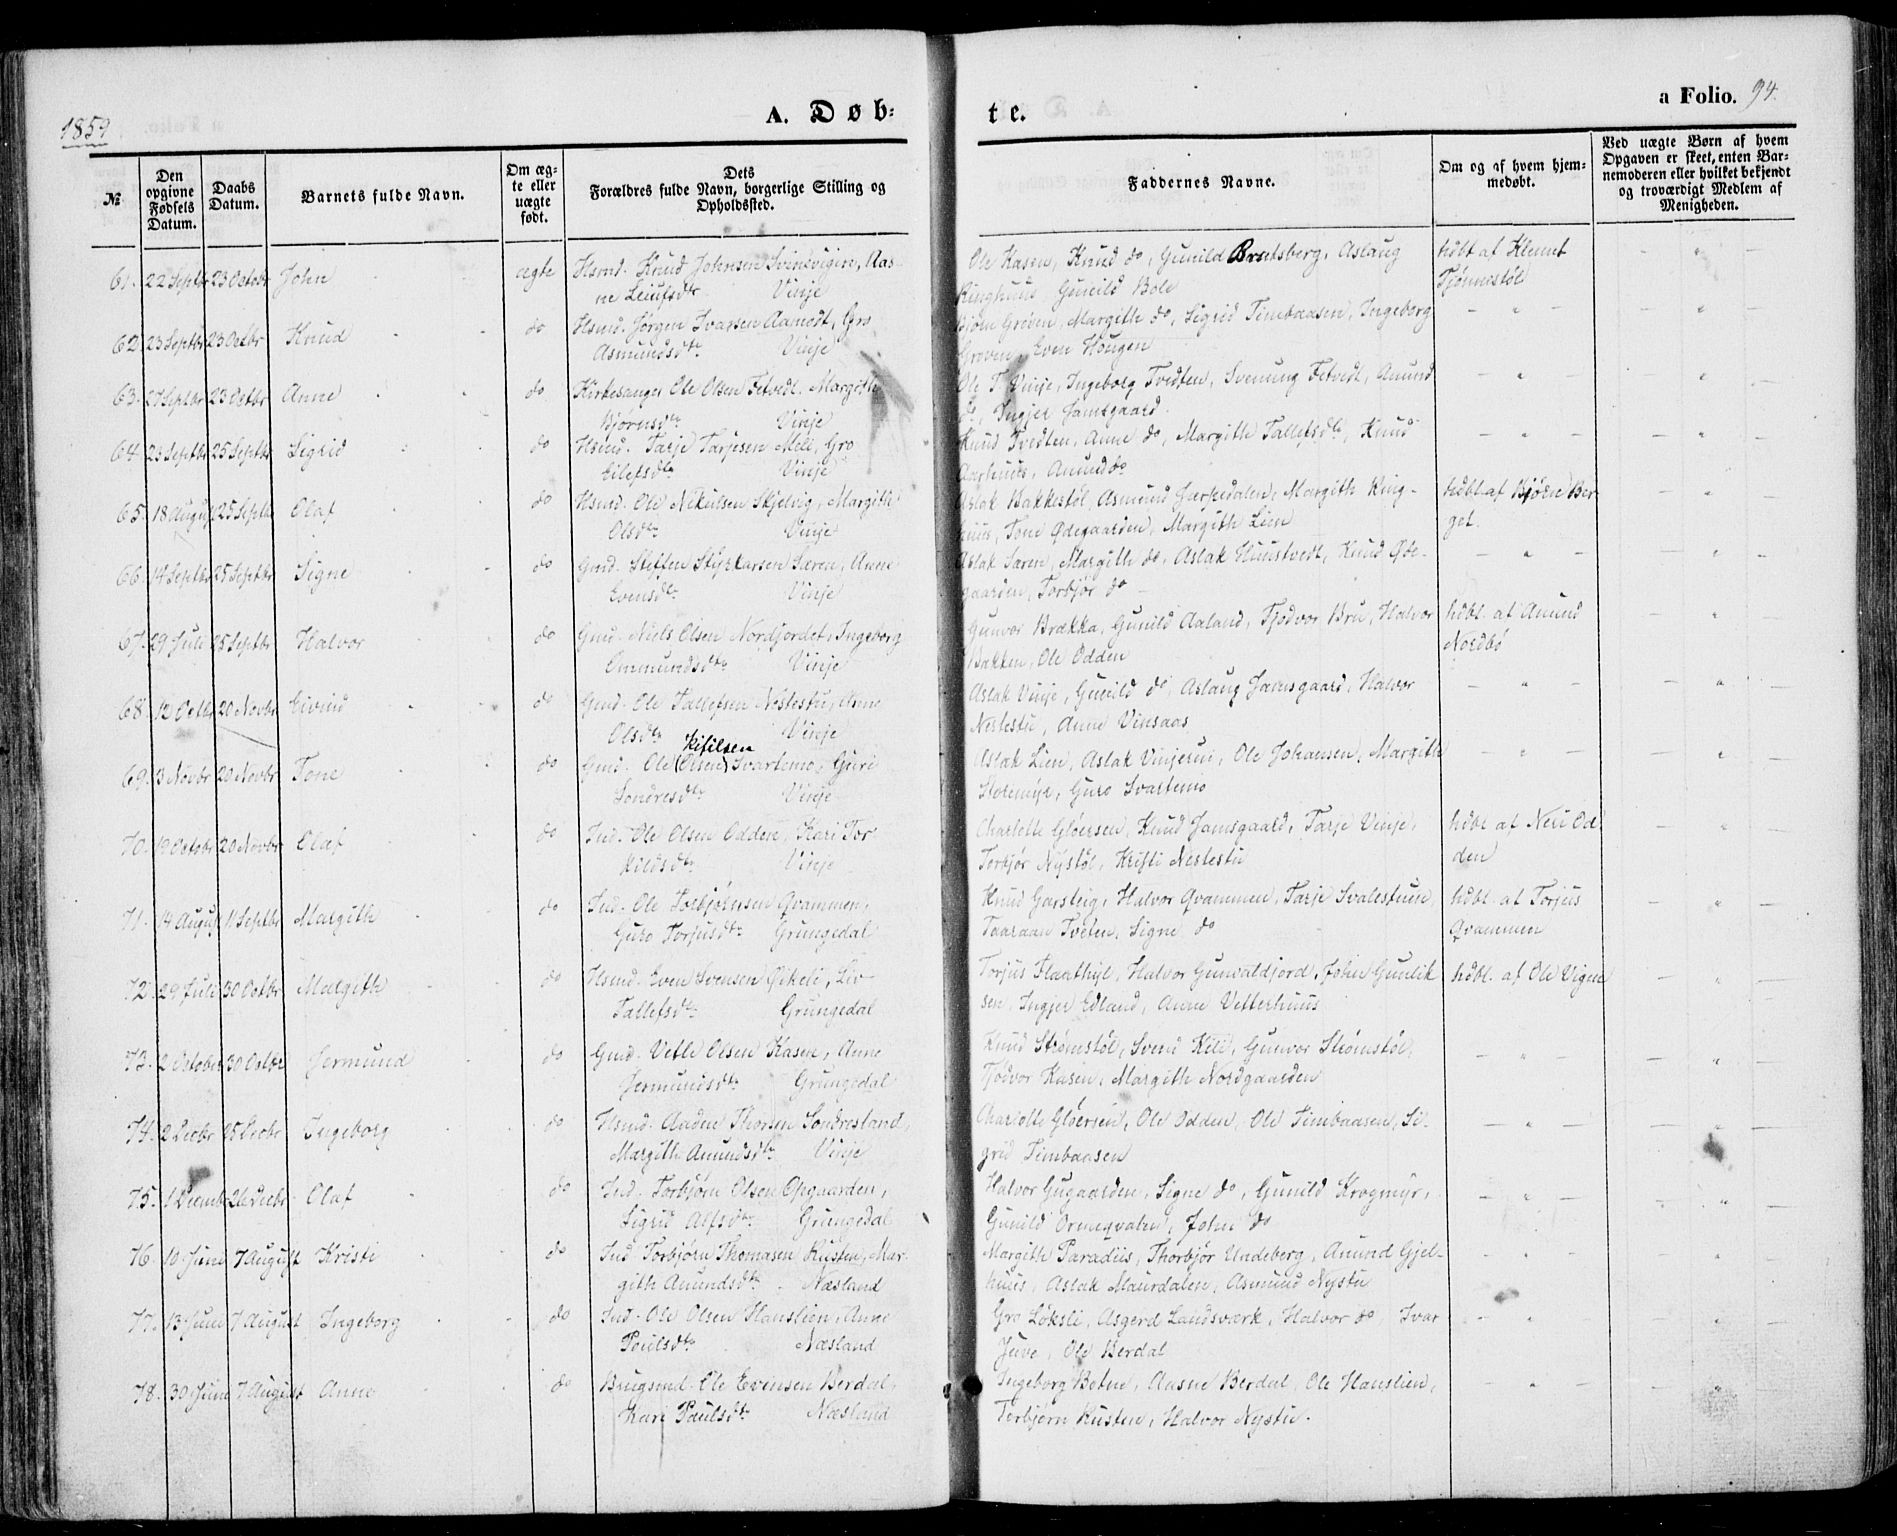 1859
A. Døb-
te.
a Folio. 94.
№
Den opgivne Fødsels Datum.
Daabs Datum.
Barnets fulde Navn.
Om æg-te eller uægte født.
Dets Forældres fulde Navn, borgerlige Stilling og Opholdssted.
Faddernes Navne.
Om og af hvem hjem-medøbt.
Ved uægte Børn af hvem Opgaven er skeet, enten Bar-nemoderen eller hvilket bekjendt og troværdigt Medlem af Menigheden.
61. 22 Septbr 23 Octobr John ægte Hsmd. Knud Johnsen Svinevigen, Aas- Ole Kasen, Knud do, Gunild Bratsberg, Aslaug hdbt af Klemet
ne Leiufsdtr Vinje Ringhuus, Gunild Bole Tjønnestøl
62. 23 Septbr 23 Octbr Knud do Hsmd. Jørgen Ivarsen Aamodt, Gro Bjørn Groven, Margith do, Sigrid Timbaasen, Ingeborg
Asmundsdtr Vinje Groven, Even Hougen
63. 27 Septbr 23 Octbr Anne do Kirkesanger Ole Olsen Fetvedt, Margith Ole T Vinje, Ingeborg Tvedten, Svenung Fetvedt, Anund
Bjørnsdtr Vinje do, Ingjer Jamsgaard.
64. 23 Septbr 25 Septbr Sigrid do Hsmd. Tarje Tarjesen Meli, Gro Knud Tvedten, Anne do, Margith Tallefsdtr, Knud
Eilefsdtr Vinje Aarhuus, Anund do
65. 18 August 25 Septbr Olaf do Hsmd. Ole Nikulsen Skjelvig, Margith Aslak Bakkestøl, Asmund Jærpedalen, Margith Ring- hdbt af Bjørn Ber-
Olsdtr Vinje huus, Tone Ødegaarden, Margith Lien get.
66. 14 Septbr 25 Septbr Signe do Gmd. Steffen Styrkarsen Særen, Anne Aslak Særen, Margith do, Aslak Huustvedt, Knud Øde-
Evensdtr Vinje gaarden, Torbjør do
67. 29 Juli 25 Septbr Halvor do Gmd. Niels Olsen Nordjordet, Ingeborg Gunvor Brækka, Gunild Aaland, Tjodvor Bru, Halvor hdbt. af Anund
Ommundsdtr Vinje Bakken, Ole Odden Nordbø
68. 12 Octbr 20 Novbr Eivind do Gmd. Ole Tallefsen Nestestu, Anne Aslak Vinje, Gunild do, Aslaug Jamsgaard, Halvor
Olsdtr Vinje Nestestu, Anne Vinsaas
Kisilsen
69. 3 Novbr 20 Novbr Tone do Gmd. Ole (Olsen) Svartemo, Guri Aslak Lien, Aslak Vinjerui, Ole Johansen, Margith
Sondresdtr Vinje Stolemyr, Guro Svartemo
70. 19 Octobr 20 Novbr Olaf do Ind. Ole Olsen Odden, Kari Tor- Charlotte Gløersen, Knud Jamsgaard, Tarje Vinje, hdbt af Neri Od-
kildsdtr Vinje Torbjør Nystøl, Kristi Nestestu den
71. 14 August 11 Septbr Margith do Ind. Ole Torbjørnsen Qvammen, Knud Garsteig, Halvor Qvammen, Tarje Svalestuen, hdbt. af Torjus
Guro Torjusdtr Grungedal Taaraan Tveten, Signe do Qvammen
72. 29 Juli 30 Octbr Margith do Hsmd. Even Svensen Økeli, Liv Torjus Flaathyl, Halvor Gunvaldjord, John Gunlik- hdbt. af Ole Vigne
Tallefsdtr Grungedal sen, Ingjer Edland, Anne Vetterhuus
73. 2 October 30 Octbr Jermund do Gmd. Vetle Olsen Kasen, Anne Knud Strømstøl, Svend Kili, Gunvor Strømstøl,
Jermundsdtr Grungedal Tjodvor Kasen, Margith Nordgaarden
74. 2 Decbr 25 Decbr Ingeborg do Hsmd. Auden Thorsen Sondresland, Charlotte Gløersen, Ole Odden, Ole Timbaasen, Si-
Margith Anundsdtr Vinje grid Timbaasen
75. 1 Decembr 26 Decbr Olaf do Ind. Torbjørn Olsen Opgaarden, Halvor Gugaarden, Signe do, Gunild Krogmyr,
Sigrid Alfsdtr Grungedal Gunild Ormeqvalen, John do
76. 10 Juni 7 August Kristi do Ind. Torbjørn Thomasen Rusten, Mar- Margith Paradiis, Thorbjør Undeberg, Anund Gjel-
gith Anundsdtr Næsland huus, Aslak Maurdalen, Asmund Nystu
77. 13 Juni 7 August Ingeborg do Ind. Ole Olsen Hanslien, Anne Gro Løksli, Asgerd Landsværk, Halvor do Ivar
Poulsdtr Næsland Juve, Ole Berdal
78. 30 Juni 7 August Anne do Brugsmd. Ole Evensen Berdal, Ingeborg Botne, Aasne Berdal, Ole Hanslien,
Kari Paulsdtr Næsland Torbjørn Rusten, Halvor Nystu.